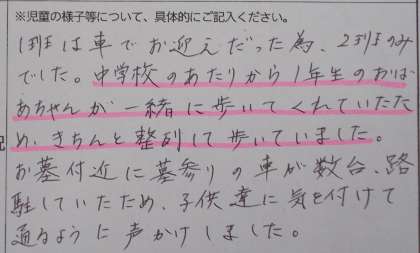 ※児童の様子等について、具体的にご記入ください。
1班は車でお迎えだった為、2班のみ
でした。中学校のあたりから1年生のおば
あちゃんが一緒に歩いてくれていたた
め、きちんと整列して歩いていました。
お墓付近に墓参りの車が数台、路
駐していたため、子供達に気を付けて
通るように声かけしました。